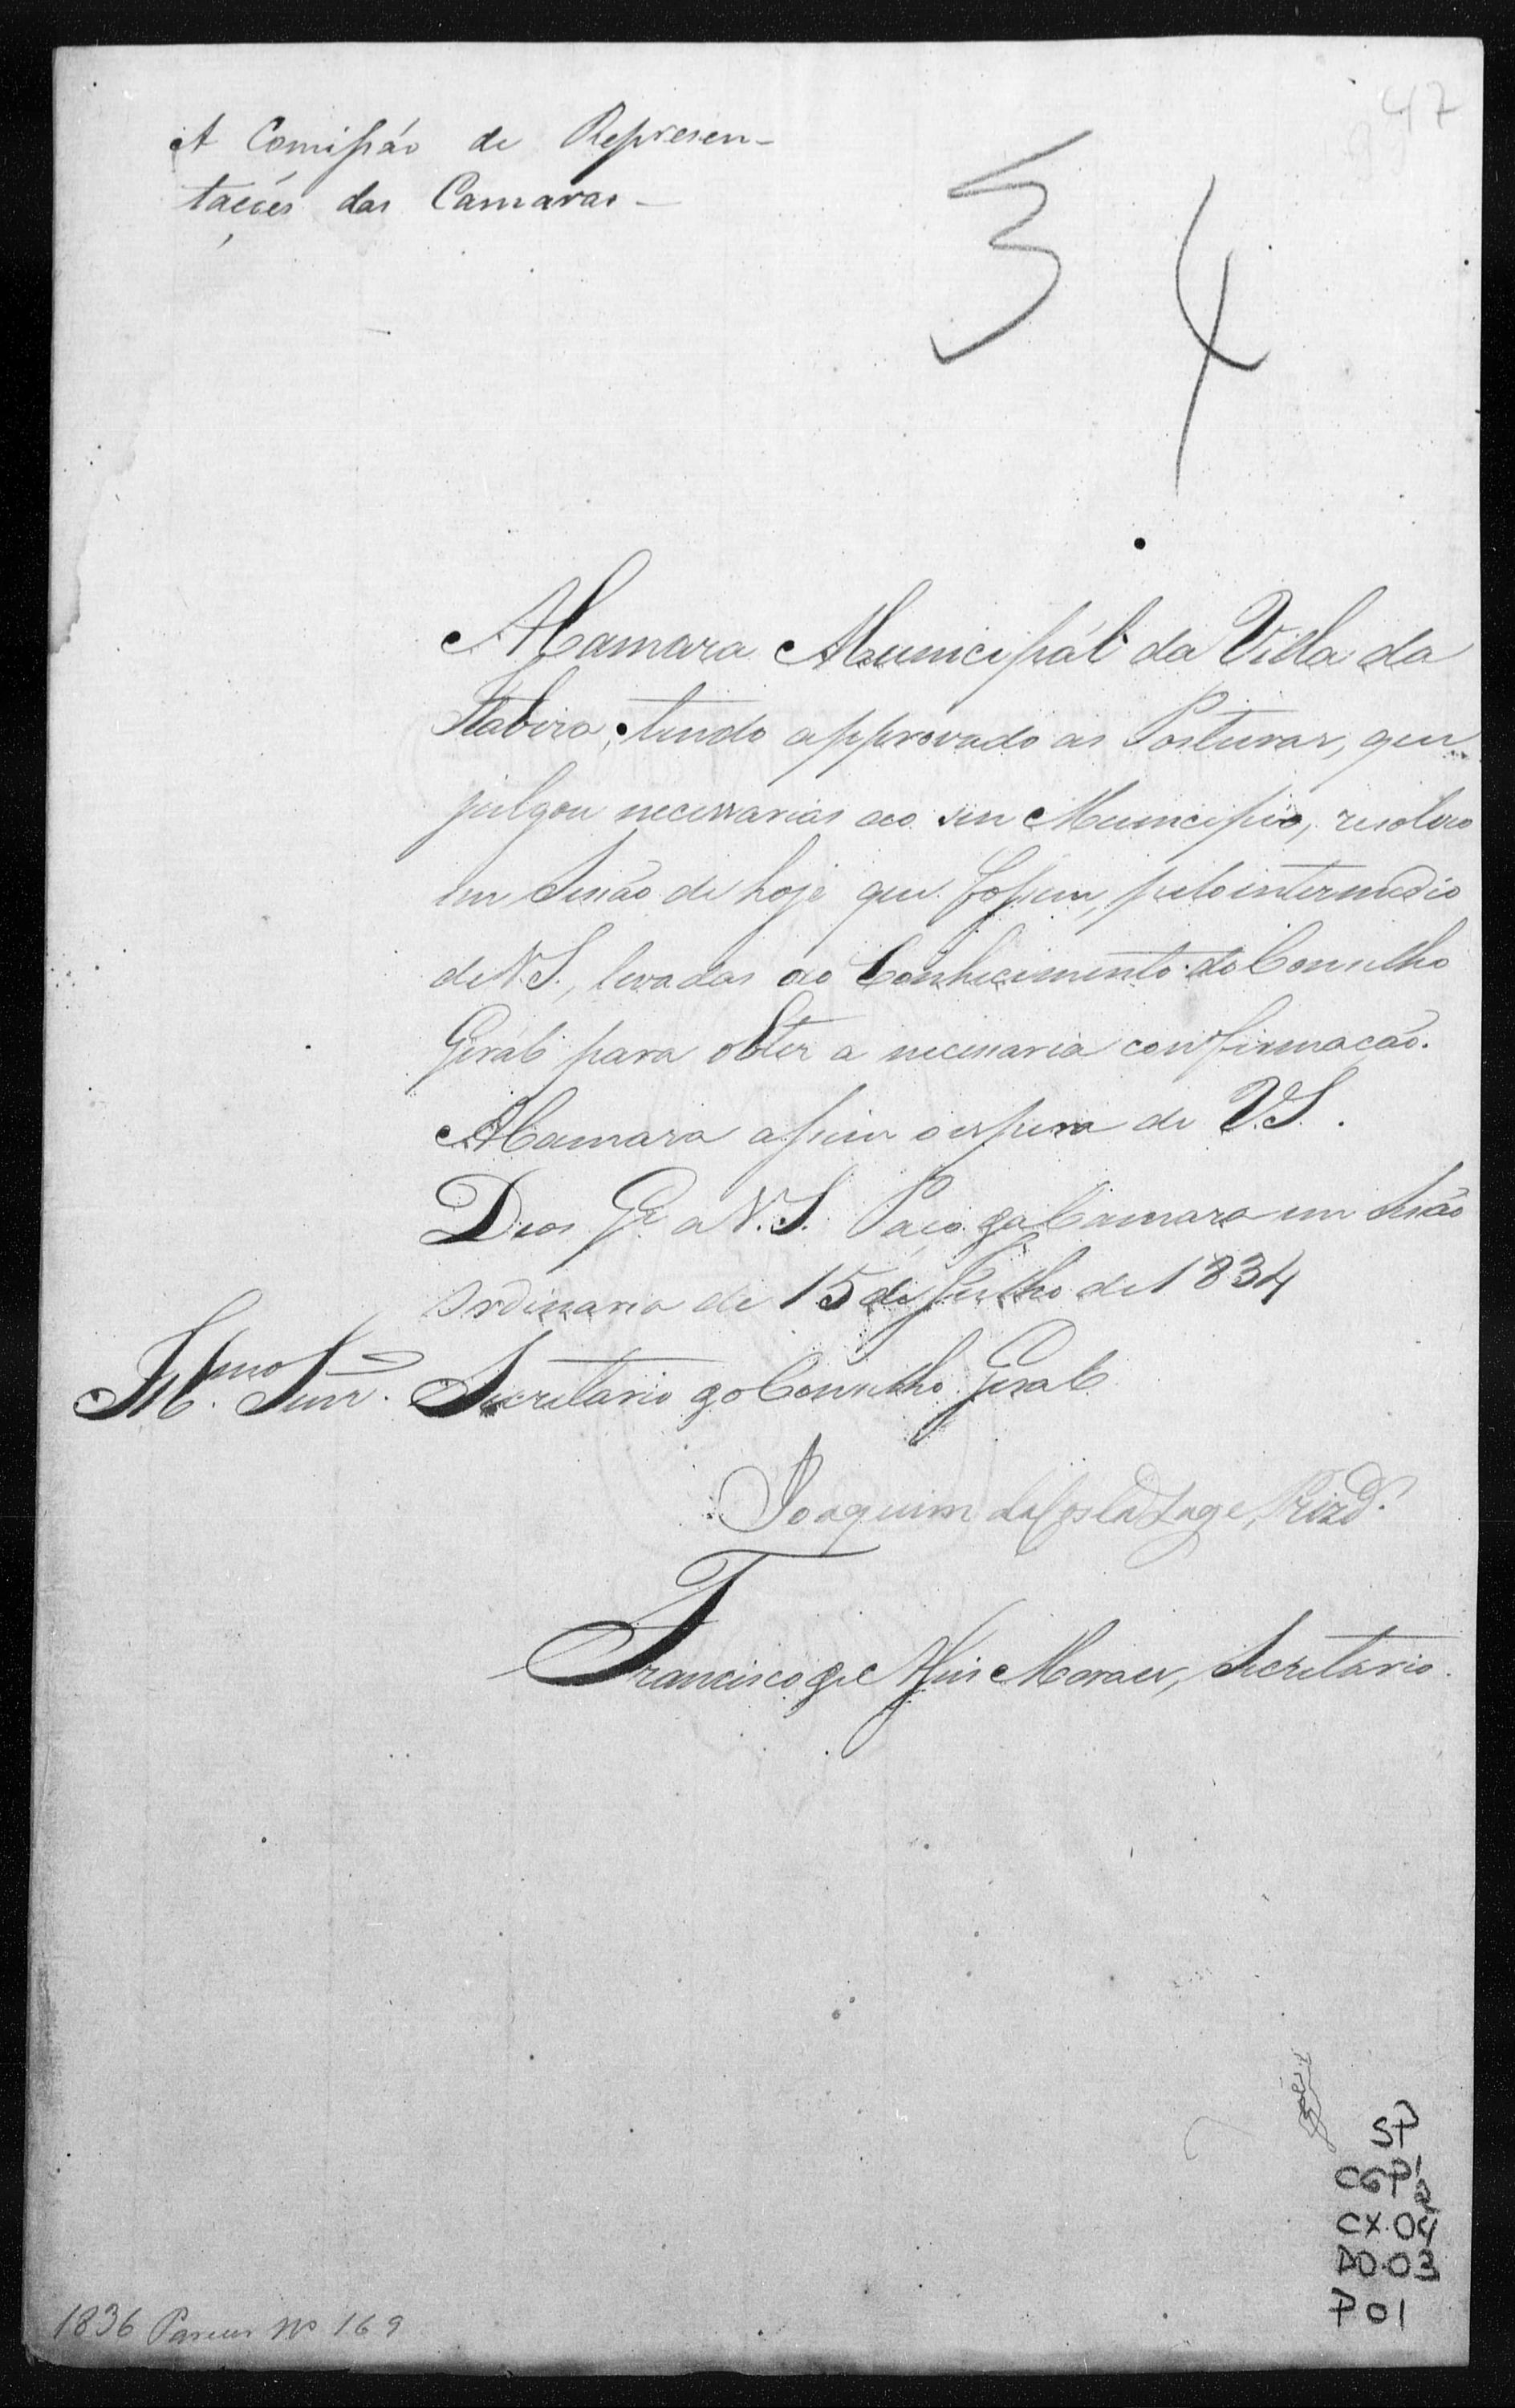 47
A Comissáo de Represen-
tacões das Camaras -
34
A Camara Municipál da Villa da
Itabira, tendo approvado as Posturas, que
julgou necessarias ao seu Municipio, resolveo
em Sessão de hoje que fossem, pelo intermedio
de V.S., levadas ao Conhecimento do Conselho
Gerál para obter a necessaria confirmação.
A Camara assim o espera de V.S.
Deos Ge. a V.S. Paço da Camara em Sessão
Ordinaria de 15 de Julho de 1834
Illmo. Senr. Secretario do Conselho Geral
Joaquim da Costa Lage, Prezde.
Francisco de Moraes, Secretario.
SP
CGP1
2
CX.04
DO.03
P01
1836 Parecer No 169